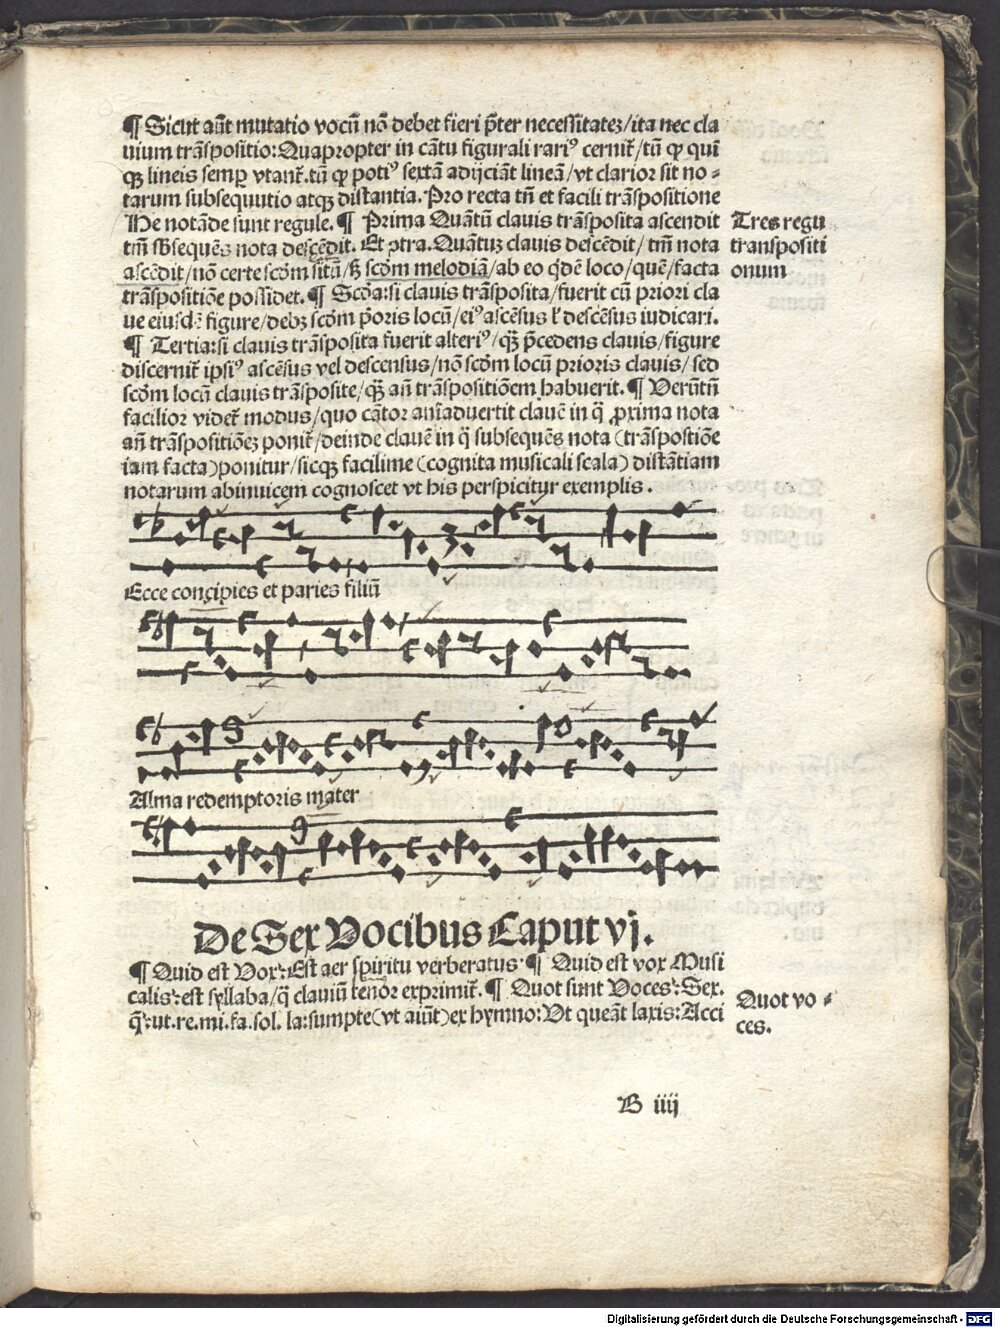 ¶ Sicut aūt mutatio vocū nō debet fieri p̄ter necessitatez/ita nec cla
uium trāspositio:Quapropter in cātu figurali rariꝰ cernit̄/tū ꝙ quin
qꝫ lineis semꝑ vtant̄.tū ꝙ potiꝰ sextā adijciāt lineā/vt clarior sit no-
tarum subsequutio atqꝫ distantia.Pro recta tn̄ et facili trāspositione
He notāde sunt regule.¶ Prima Quātū clauis trāsposita ascendit
tm̄ sb̄sequēs nota descēdit. Et ꝯtra.Quātuꝫ clauis descēdit/tm̄ nota
ascēdit/nō certe scd̄m sitū/sꝫ scd̄m melodiā/ab eo qd̄e loco/quē/facta
trāspositiōe possidet.¶ Scd̄a:si clauis trāsposita/fuerit cū priori cla
ue eiusdē figure/debꝫ scd̄m p̄oris locū/eiꝰ ascēsus l̄ descēsus iudicari.
¶ Tertia:si clauis trāsposita fuerit alteriꝰ/qꝫ̄ p̄cedens clauis/figure
discernit̄ ipsiꝰ ascēsus vel descensus/nō scd̄m locū prioris clauis/sed
scd̄m locū clauis trāsposite/qꝫ̄ an̄ trāspositiōem habuerit.¶ Verūtn̄
facilior videt̄ modus/quo cātor aīaduertit clauē in q̄ ꝓxima nota
an̄ trāspositiōeꝫ ponit̄/deinde clauē in q̄ subsequēs nota (trāspostiōe
iam facta)ponitur/sicqꝫ facilime (cognita musicali scala) distātiam
notarum abinuicem cognoscet vt his perspicitur exemplis.
Tres regu
transpositi
onum
Ecce concipies et paries filiū
Alma redemptoris mater
De Sex Vocibus Caput vj.
¶ Quid est Vox:Est aer spiritu verberatus.¶ Quid est vox Musi
calis:est syllaba/q̄ clauiū tenor exprimit̄.¶ Quot sunt Voces:Sex.
q̄:ut.re.mi.fa.sol. la:sumpte(vt aiūt)ex hymno:Vt queāt laxis:Acci
Quot vo-
ces.
B iiij
Digitalisierung gefördert durch die Deutsche Forschungsgemeinschaft - DFG